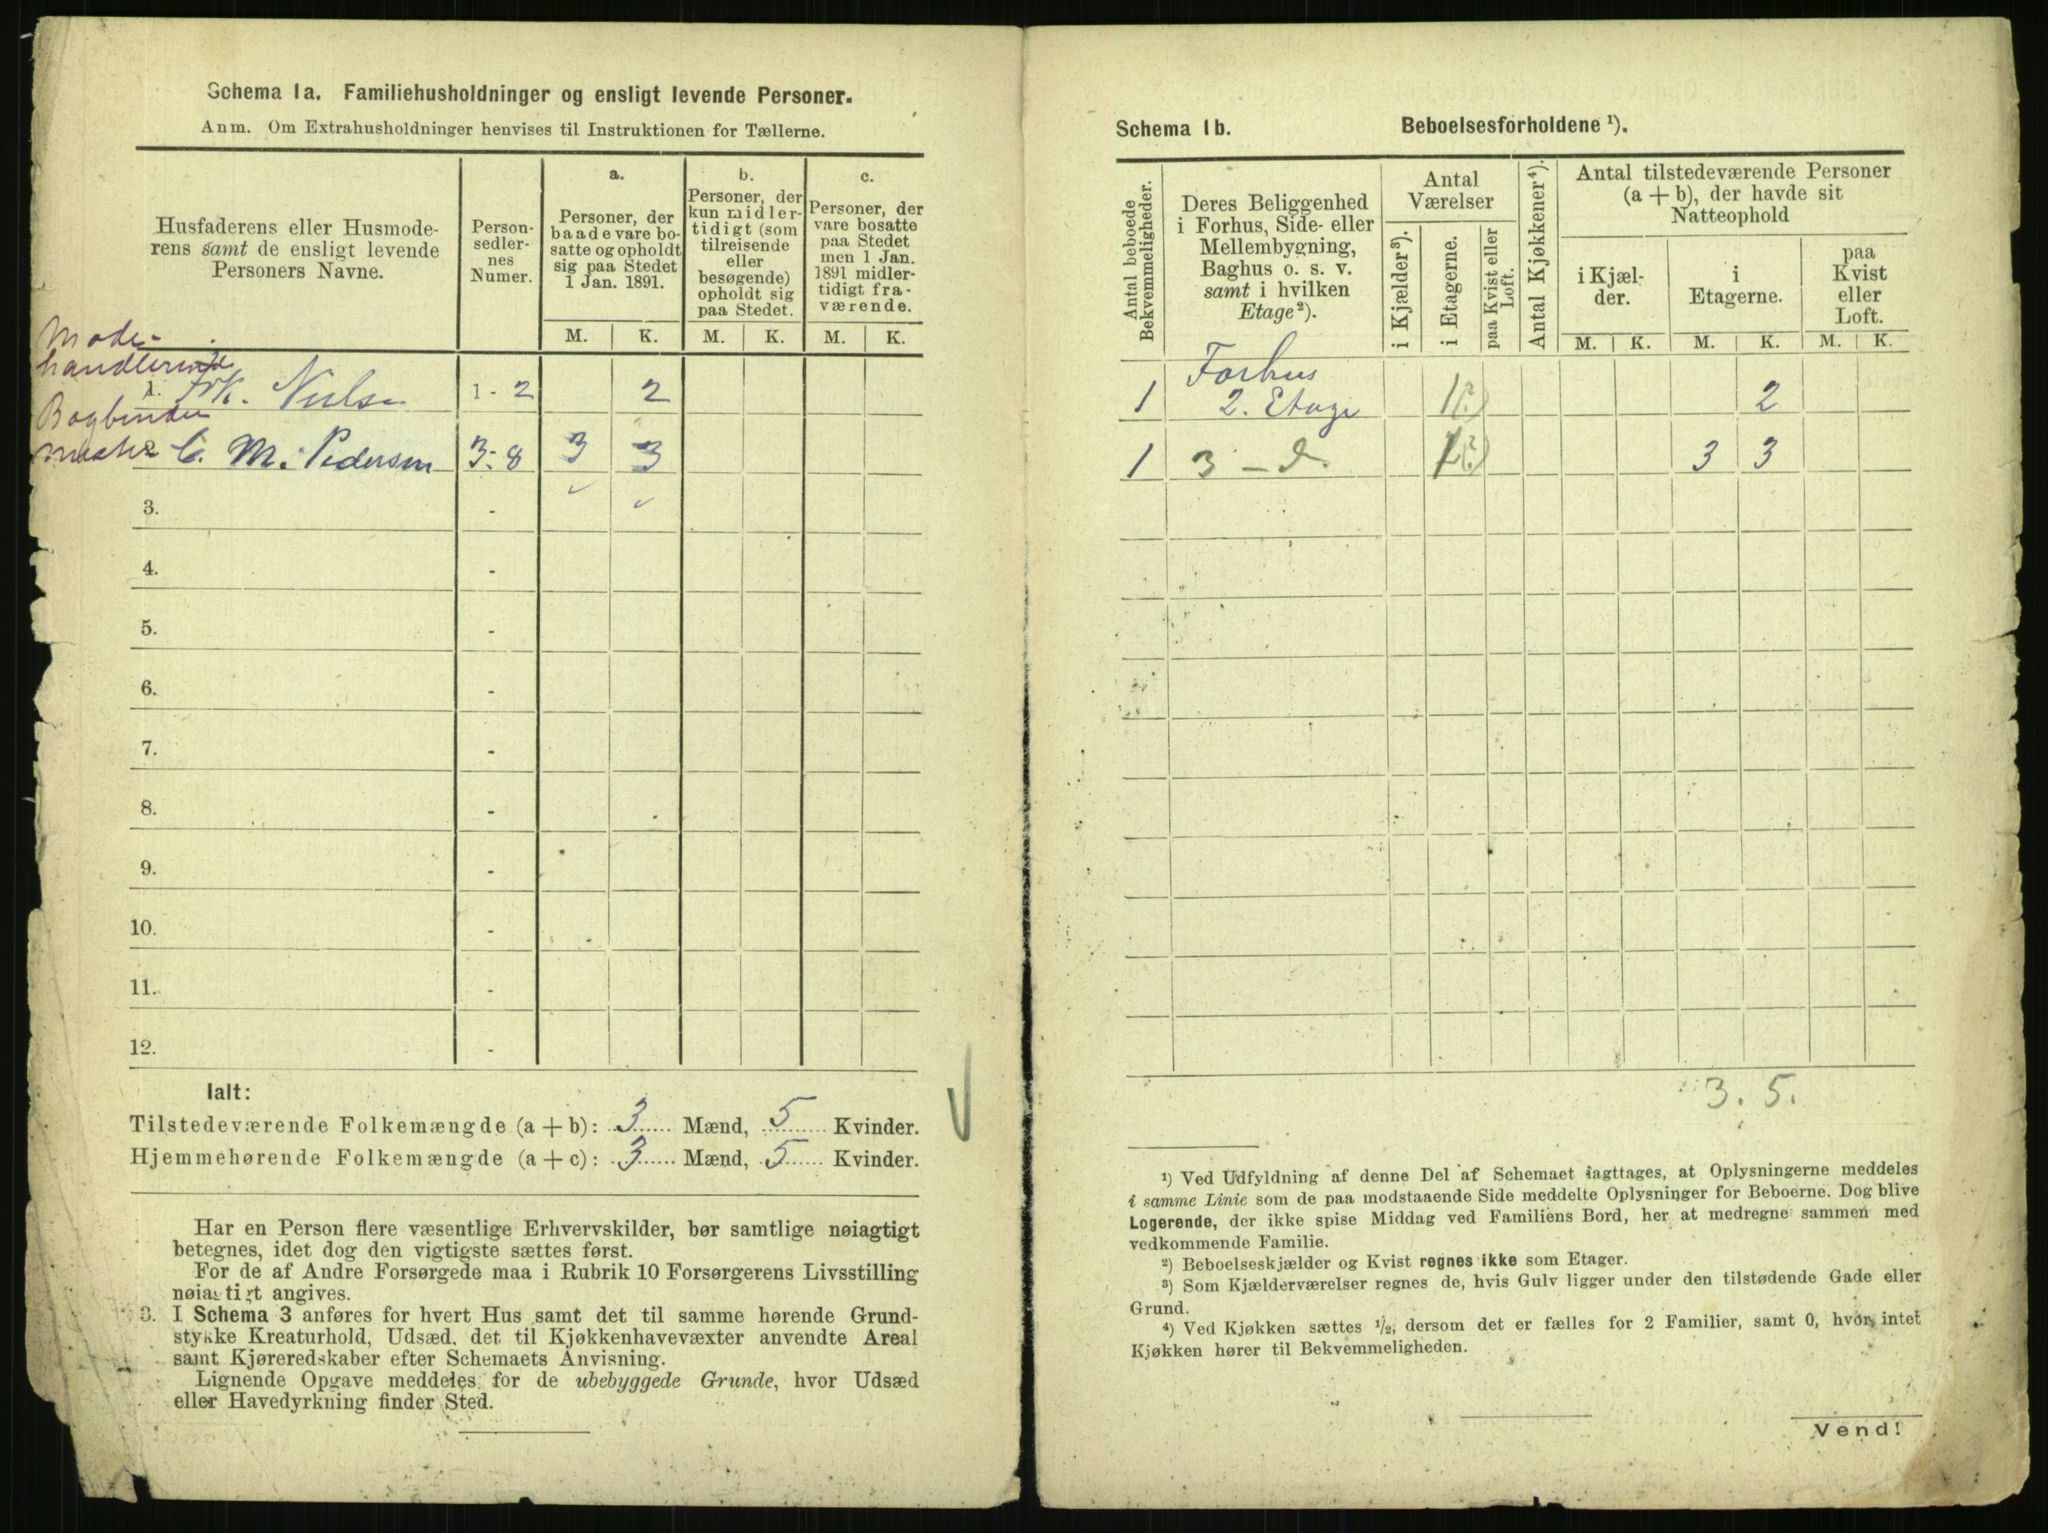 Schema 1a. Familiehusholdninger og ensligt levende Personer.
Anm. Om Extrahusholdninger henvises til Instruktionen for Tællerne.
Husfaderens eller Husmoderens samt de ensligt levende Personers Navne.
Personsedlernes Numer.
a.
Personer, der baade vare bosatte og opholdt sig paa Stedet 1 Jan. 1891.
b.
Personer, der kun midlertidigt (som tilreisende eller besøgende) opholdt sig paa Stedet.
c.
Personer, der vare bosatte paa Stedet men 1 Jan. 1891 midlertidigt fraværende.
M. K. M. K. M. K.
Mode-
handlerinde
1. Frk. Nielsen 1 - 2 2
Bogbinder
mester 2 C. M. Pedersen 3 - 8 3 3
3. -
4. -
5. -
6. -
7. -
8. -
9. -
10. -
11. -
12. -
Ialt:
Tilstedeværende Folkemængde (a + b): 3 Mænd, 5 Kvinder.
Hjemmehørende Folkemængde (a + c): 3 Mænd, 5 Kvinder.
Har en Person flere væsentlige Erhvervskilder, bør samtlige nøiagtigt
betegnes, idet dog den vigtigste sættes først.
For de af Andre Forsørgede maa i Rubrik 10 Forsørgerens Livsstilling
nøiagtigt angives.
3. I Schema 3 anføres for hvert Hus samt det til samme hørende Grund-
stykke Kreaturhold, Udsæd, det til Kjøkkenhavevæxter anvendte Areal
samt Kjøreredskaber efter Schemaets Anvisning.
Lignende Opgave meddeles for de ubebyggede Grunde, hvor Udsæd
eller Havedyrkning finder Sted.
Schema 1b. Beboelsesforholdene ¹).
Antal beboede Bekvemmeligheder.
Deres Beliggenhed i Forhus, Side- eller Mellembygning, Baghus o. s. v. samt i hvilken Etage ²).
Antal Værelser
i Kjælder ³).
i Etagerne.
paa Kvist eller Loft.
Antal Kjøkkener ⁴).
Antal tilstedeværende Personer (a + b), der havde sit Natteophold
i Kjælder.
i Etagerne.
paa Kvist eller Loft.
M. K. M. K. M. K.
1 Forhus
2. Etage 1(?) 2
1 3 - d. (?) 3 3
3. 5.
¹) Ved Udfyldning af denne Del af Schemaet iagttages, at Oplysningerne meddeles
i samme Linie som de paa modstaaende Side meddelte Oplysninger for Beboerne. Dog blive
Logerende, der ikke spise Middag ved Familiens Bord, her at medregne sammen med
vedkommende Familie.
²) Beboelseskjælder og Kvist regnes ikke som Etager.
³) Som Kjælderværelser regnes de, hvis Gulv ligger under den tilstødende Gade eller
Grund.
⁴) Ved Kjøkken sættes ½, dersom det er fælles for 2 Familier, samt 0, hvor intet
Kjøkken hører til Bekvemmeligheden.
Vend!